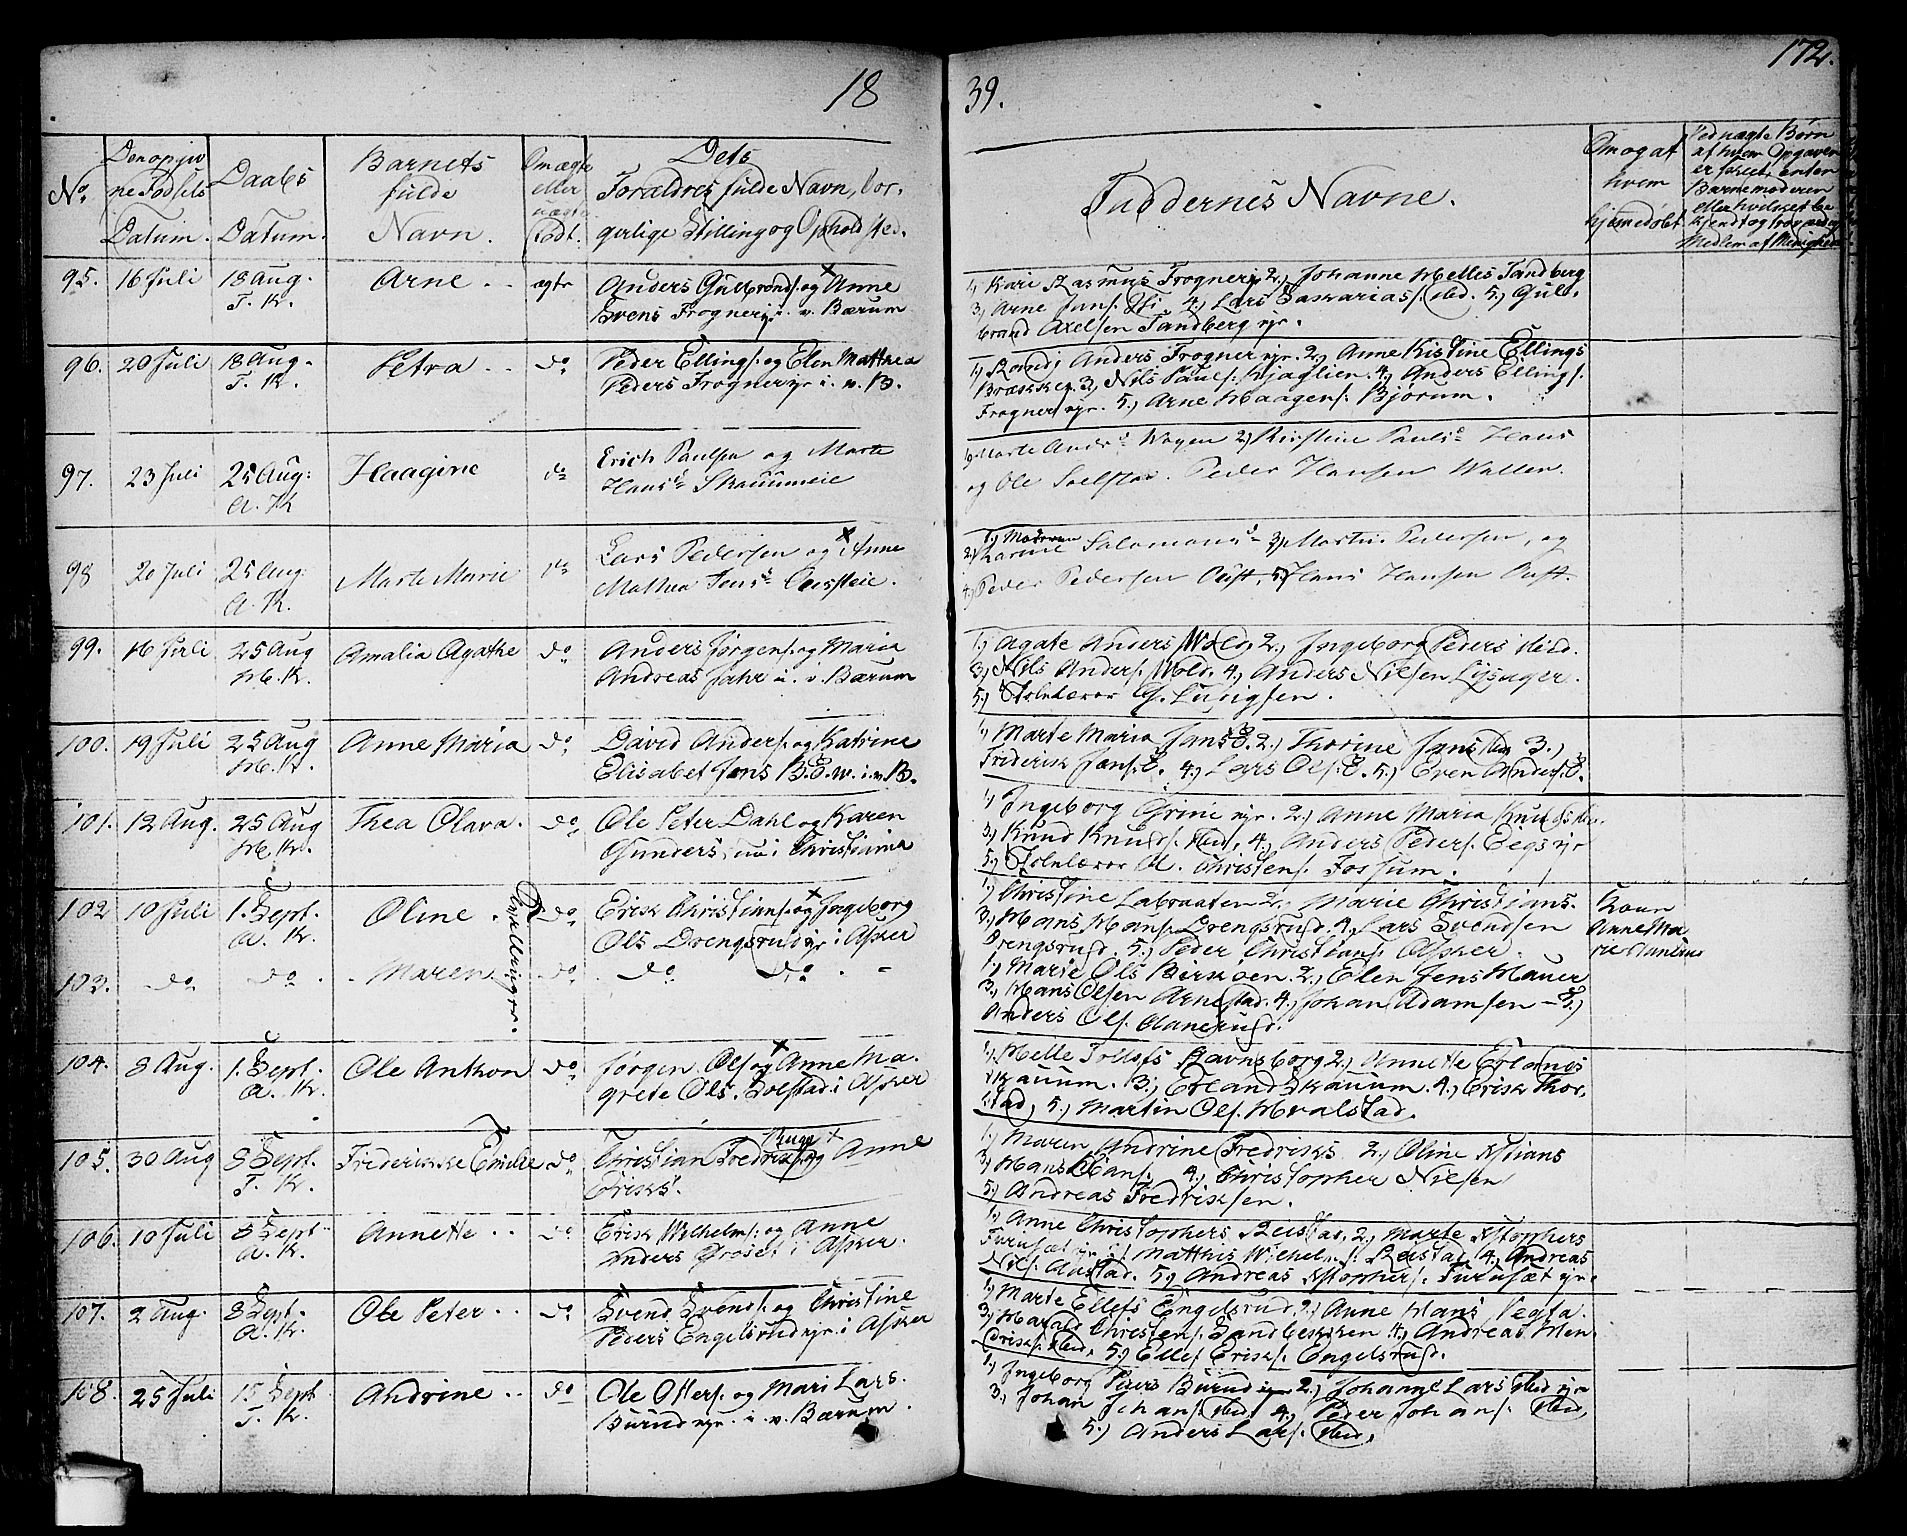 18 39. 172.
No.
Den opgivne Fødsels Datum.
Daabs Datum.
Barnets fulde Navn.
Om ægte eller uægte født.
Dets Forældres fulde Navn, borgerlige Stilling og Opholdsted.
Faddernes Navne.
Om og af hvem hjemedøbt
Ved uægte Børn
af hvem Opgaven
er skeet, enten
Barnemoderen
eller hvilket be
kjendt og troværdig
Medlem af Menighed
95. 16 Juli 18 Aug. T. K. Arne . . ægte
Anders Gulbrands. og Anne
Svens Frogner i. v. Bærum
1, Kari Rasmus Frogner 2, Johanne Helles Tandberg
3, Arne Jans. 4, Lars Saskarias. sted. 5, Gul-
brand Axelsen Tandberg ejr.
96. 20 Juli 18 Aug. T. K. Petra . . do
Peder Ellings. og Elen Mathea
Peders Frogner ejr i. v. B.
1, Anders Frogner ejr. 2, Anne Kistine Ellings
3, Nils Pauls. Kjaglien. 4, Anders Ellings.
Frogner ejr. 5, Arne Haagens. Bjørum.
97. 23 Juli 25 Aug: A. K Haagine do
Erich Paulsen og Marte
Hansd Skauumeie
1, Marte Andrd Wøyen 2, Kirstine Paulsd Hans
og Ole Solstad. Peder Hansen Wallen.
98 20 Juli 25 Aug. A. K. Marte Marie do
Lars Pedersen og Anne
Mathea Jensd
1, Moderen
2, Karine Salomonsd 3, Martin Pedersen, og
4, Peder Pedersen 5, Hans Hansen
99. 16 Juli 25 Aug H. K. Amalia Agathe do
Anders Jørgens. og Maria
Andreas Jahr i. v. Bærum
1, Agate Anders Wold, 2, Ingeborg Peders
3, Nils Anders. Wold. 4, Anders Nielsen Lysager.
5, Skolelærer G.
100. 19 Juli 25 Aug H. K. Anne Maria do
David Anders. og Katrine
Elisabet Jans i. v. B.
1, Marte Maria Jans 2, Thorine Jans sted 3,
Friderik Jans. 4, Lars Ols. 5, Even Anders.
101. 12 Aug. 25 Aug H. K. Thea Olava . do
Ole Peter Dahl og Karen
Gunders, i Christiania
1, Ingeborg Grini ejr. 2, Anne Maria Knuds
3, Knud Knuds. sted, 4, Anders Peders.
5, Skolelærer Ol. Christens. Fossum.
102 10 Juli 1. Sept. A. K. Oline . Tvillinger. do
Erik Christians. og Ingeborg
Ols Drengsrud ejr i Asker
1, Christine Labraaten 2, Marie Christians.
3, Hans Hans. Drengsrud. 4, Lars Svendsen
Drengsrud. 5, Peder Christians. Asker.
Anne Ma
rie
103. do do . Maren do do do . -
1, Marie Ols 2, Elen Jens Hauer
3, Hans Olsen Arnestad. 4, Johan Adamsen - 5,
Anders Ols.
104. 8 Aug. 1. Sept. A. K. Ole Anthon do
Jørgen Ols. og Anne Ma.
grete Ols. Solstad i Asker
1, Helle Tollefs Ravnsborg 2, Annette Erlands
Skauum. 3, Erland Skauum. 4, Erik Thor.
stad, 5, Martin Ols. Hvalstad.
105. 30 Aug 8 Sept. T. K. Frederikke Emilie do
Christian Fredriks. og Anne
Eriks.
1, Maren Andrine Fredriks 2, Oline Kstians
3, Hans Hans. 4, Christopher Nielsen
5, Andreas Fredriksen.
106. 10 Juli 8 Sept. A. K. Annette . . do
Erik Wilhelms. og Anne
Anders Grøset i Asker.
1, Anne Christophers Reistad, 2, Marte Kstophers
Furusæt ejr 3, Matthis Wilhelms. Reistad 4, Andreas
Nils. Austad. 5, Andreas Kstophers. Furusæt ejr.
107. 2 Aug. 8 Sept. A. K. Ole Peter . . do
Svend Svends. og Christine
Peders Engelsrud ejr i Asker
1, Marte Ellefs Engelsrud. 2, Anne Hans
3, Harald Christens. 4, Andreas Hen
driks. sted, 5, Ellef Eriks. Engelsrud.
108. 25 Juli 15 Sept T. K. Andrine . . do
Ole Otters. og Mari Lars.
Burud ejr. i. v. Bærum.
1, Ingeborg Burud ejr 2, Johanne Lars sted ejr
3, Johan Johans. sted, 4, Peder Johans. sted,
5, Anders Lars. sted,